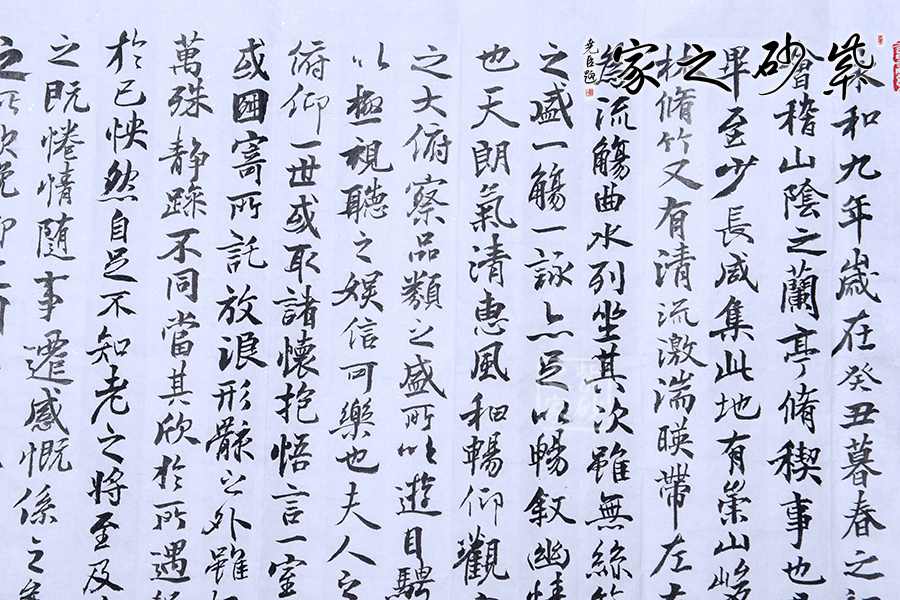 紫砂之家
和九年歲在癸丑暮春之
會稽山陰之蘭亭脩稧事也
畢至少長咸集此地有崇山峻
林脩竹又有清流激湍暎帶左
流觴曲水列坐其次雖無絲
之盛一觴一詠亦足以暢敘幽情
也天朗氣清惠風和暢仰觀
之大俯察品類之盛所以遊目騁
以極視聽之娛信可樂也夫人之
俯仰一世或取諸懷抱悟言一室
或因寄所託放浪形骸之外雖
萬殊静躁不同當其欣於所遇
於己怏然自足不知老之將至及
之既惓情随事遷感慨係之
之所欣俛仰